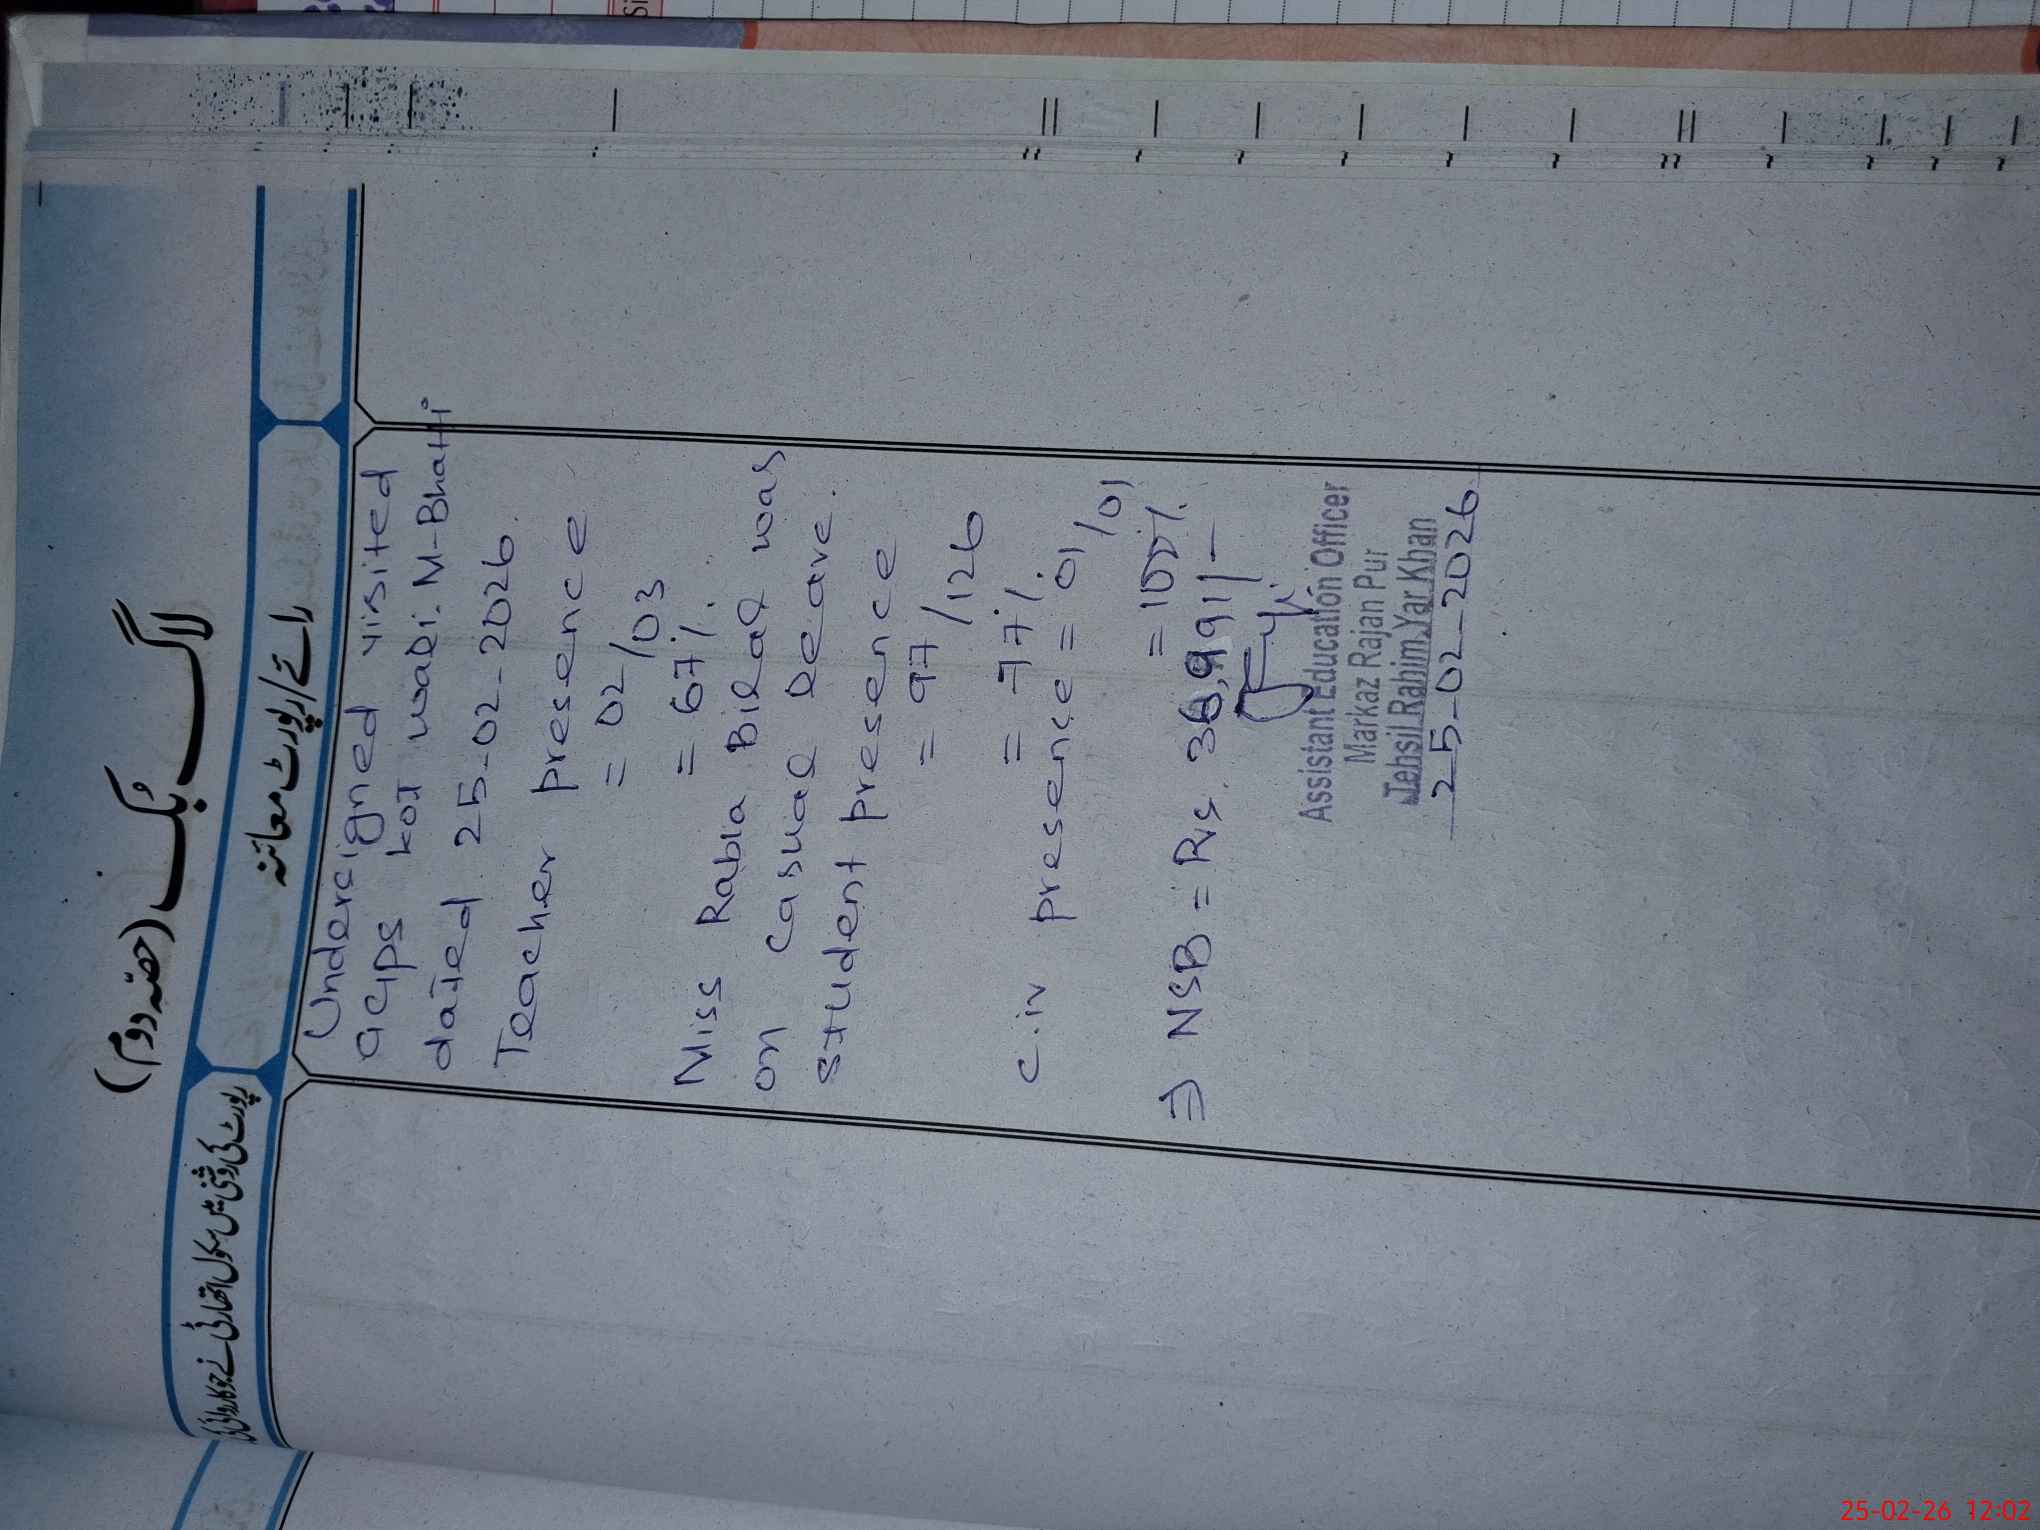 لاگ بُک (حصّہ دوم)
رائے/رپورٹ معائنہ
رپورٹ کی روشنی میں سکول اتھارٹی نے جو کاروائی کی
Undersigned visited
GGPS Kot wali M-Bhatti
dated 25-02-2026.
Teacher presence
= 02/03
= 67%.
Miss Rabia Bilal was
on casual leave.
Student presence
= 97/126
= 77%
C.iv presence = 01/01
= 100%.
⇒ NSB = Rs. 36,991/-
Assistant Education Officer
Markaz Rajan Pur
Tehsil Rahim Yar Khan
25-02-2026
25-02-26 12:02